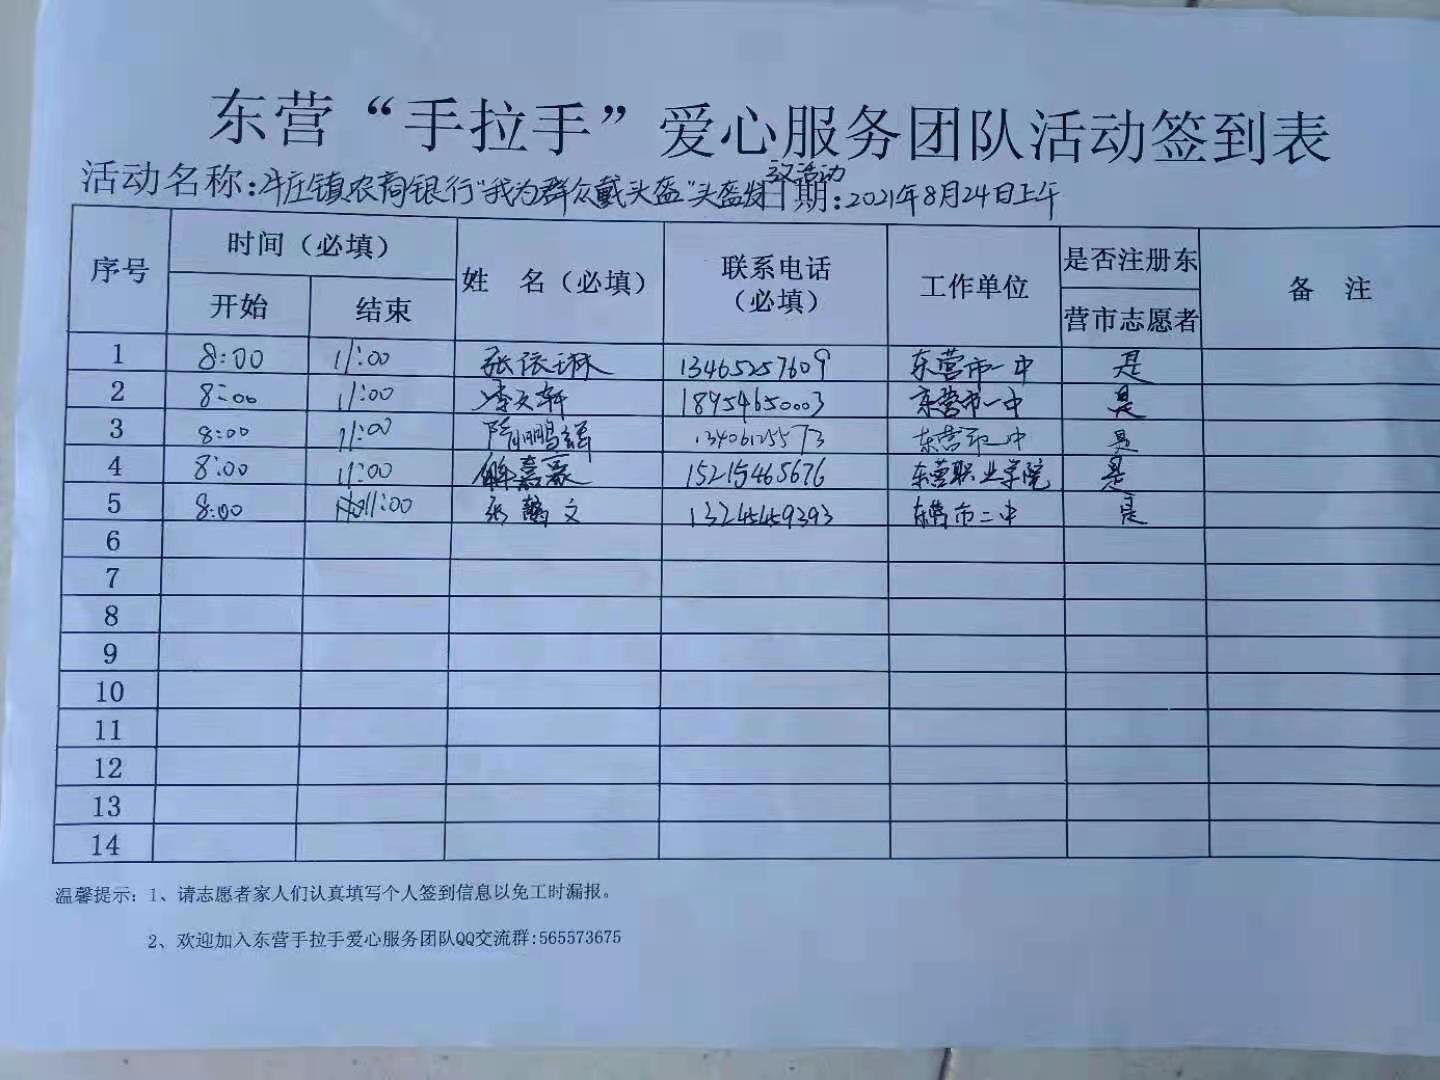 东营“手拉手”爱心服务团队活动签到表
活动名称:牛庄镇农商银行“我为群众戴头盔”头盔发放活动 日期:2021年8月24日上午
序号 时间（必填） 姓 名（必填） 联系电话（必填） 工作单位 是否注册东营市志愿者 备 注
开始 结束
1 8:00 11:00 张依琳 13465257609 东营市一中 是
2 8:00 11:00 李文轩 18954650003 东营市一中 是
3 8:00 11:00 隋鹏 13406125573 东营市一中 是
4 8:00 11:00 解嘉豪 15215465676 东营职业学院 是
5 8:00 11:00 文 13245459393 东营市二中 是
6
7
8
9
10
11
12
13
14
温馨提示: 1、请志愿者家人们认真填写个人签到信息以免工时漏报。
2、欢迎加入东营手拉手爱心服务团队QQ交流群:565573675